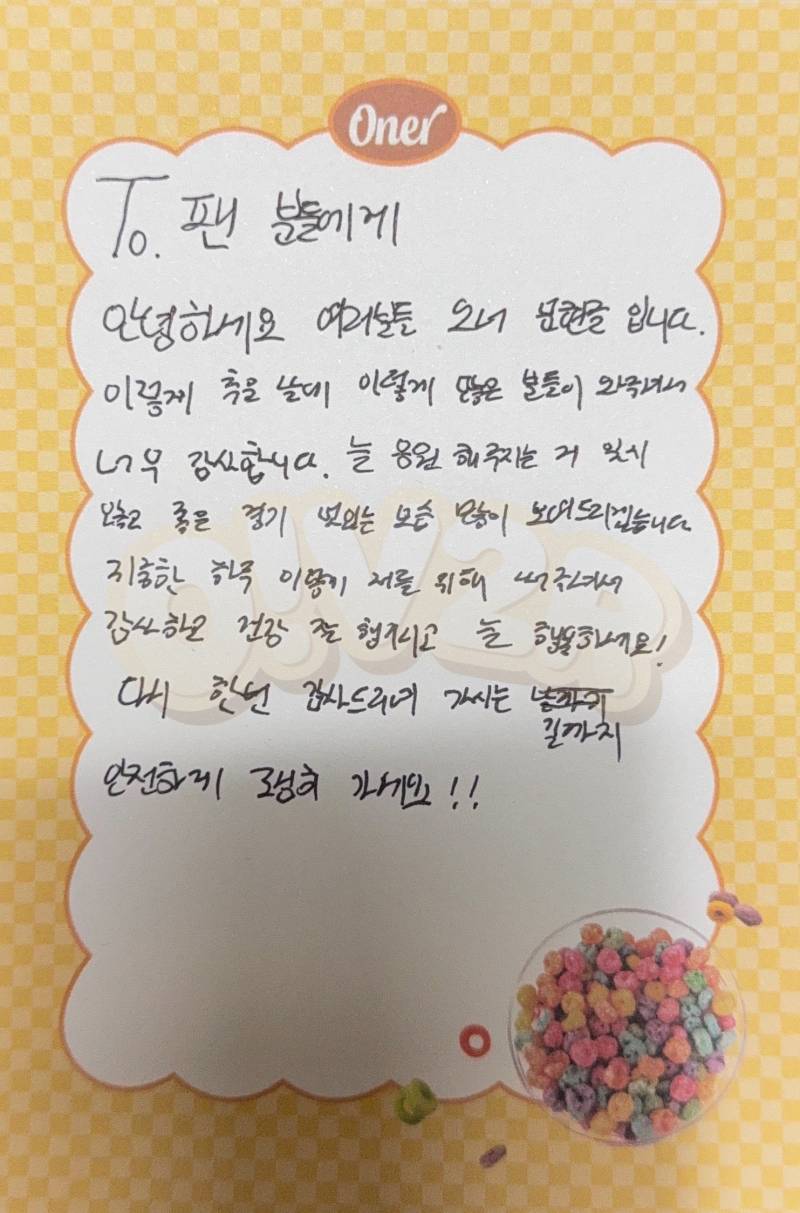 Oner
To. 팬 분들에게
안녕하세요 여러분들 오너 문현준 입니다.
이렇게 추운 날에 이렇게 많은 분들이 와주셔서
너무 감사합니다. 늘 응원 해주지는 거 잊지
않고 좋은 경기 멋있는 모습 많이 보여드리겠습니다.
하루 저를 위해 써주셔서
감사하고 건강 잘 챙기시고 늘 행복하세요!
다시 한번 감사드리며 가시는
길까지
안전하게 조심히 가세요!!